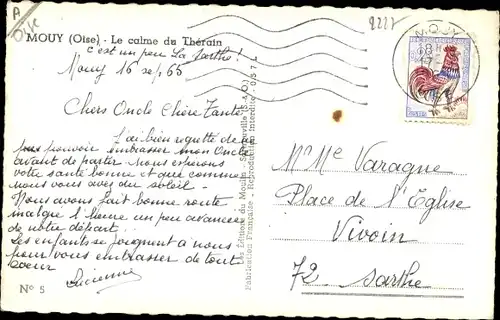 A
Oise
2227
MOUY (Oise) - Le calme du Thérain
c'est un peu La Sarthe!
Mouy 16 sep 65
Chers Oncle Chère Tante
J'ai bien regretté de ne
pas pouvoir embrasser mon Oncle
avant de partir. Nous espérons
votre santé bonne et que comme
nous vous avez du soleil -
Nous avons fait bonne route
malgré l'heure un peu avancée
de notre départ.
Les enfants se joignent à nous
pour vous embrasser de tout
coeur
Lucienne
N° 5
Les Editions du Moulin
Fabrication Française - Reproduction Interdite
MOUY
18 H
M. Me Varagne
Place de l'Eglise
Vivoin
72 Sarthe